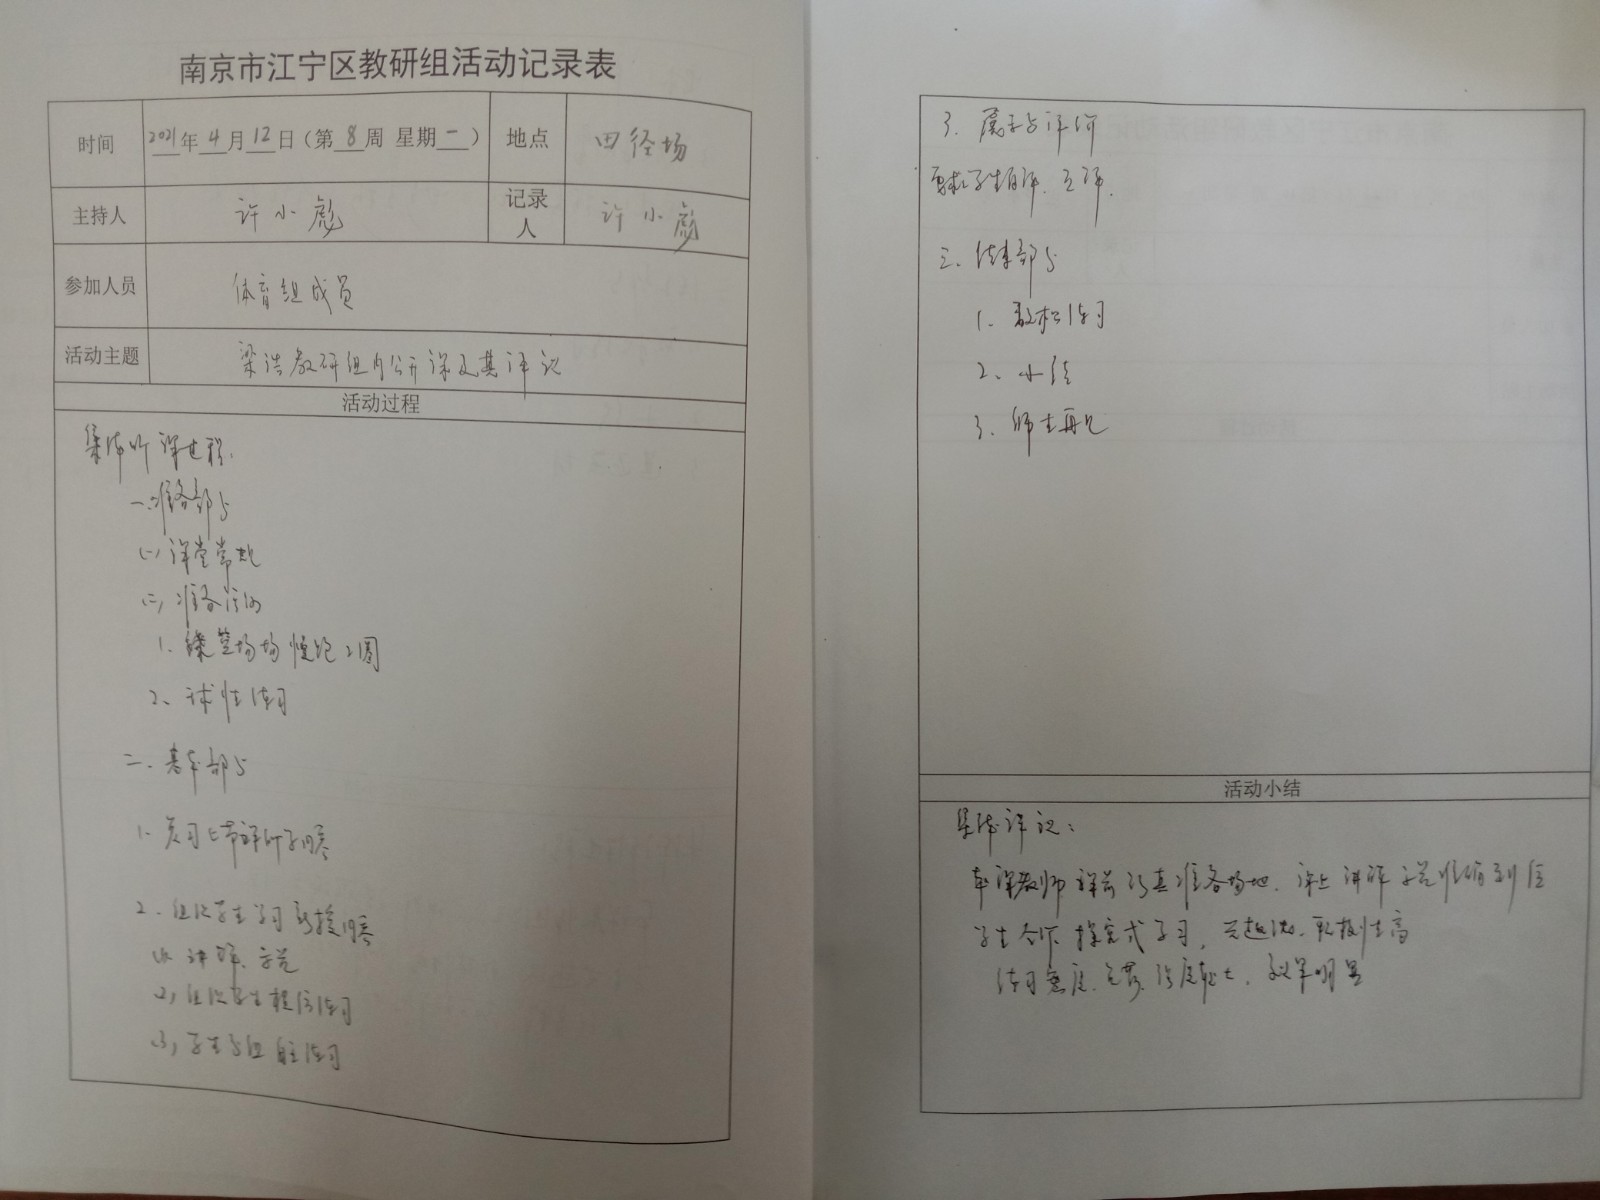 南京市江宁区教研组活动记录表
时间 2021年4月12日（第8周 星期一） 地点 田径场
主持人 许小彪 记录人 许小彪
参加人员 体育组成员
活动主题 梁浩教研组内公开课及其评议
活动过程
集体听课过程：
一、准备部分
（一）课堂常规
（二）准备活动
1. 篮球场慢跑2圈
2、球性练习
二、基本部分
1. 复习上节课所学内容
2. 组织学生学习新授内容
（1）讲解、示范
（2）组织学生模仿练习
（3）学生分组自主练习
3. 展示与评价
学生自评、互评.
三、结束部分
1、放松练习
2、小结
3、师生再见
活动小结
集体评议：
本课教师课前认真准备场地、课上讲解示范准确到位
学生合作探究式学习，兴趣浓、积极性高
练习密度、强度较大、效果明显